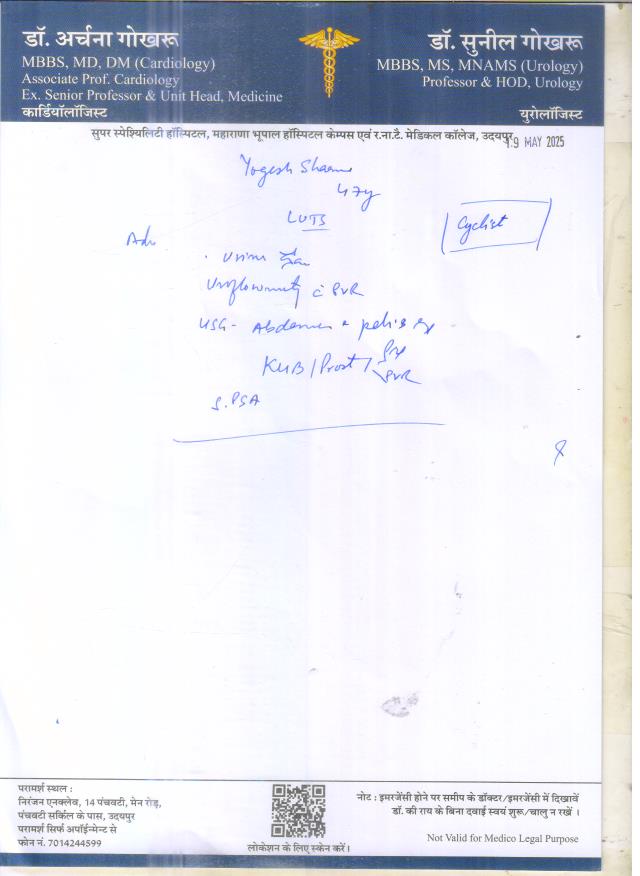 डॉ. अर्चना गोखरू
MBBS, MD, DM (Cardiology)
Associate Prof. Cardiology
Ex. Senior Professor & Unit Head, Medicine
कार्डियॉलॉजिस्ट
डॉ. सुनील गोखरू
MBBS, MS, MNAMS (Urology)
Professor & HOD, Urology
युरोलॉजिस्ट
सुपर स्पेश्यिलिटी हॉस्पिटल, महाराणा भूपाल हॉस्पिटल केम्पस एवं र.ना.टै. मेडिकल कॉलेज, उदयपुर
9 MAY 2025
Yogesh Sharma
47y
LUTS
Cyclist
Adv
Urine
Uroflowmetry c̄ PVR
USG - Abdomen & pelvis
KUB / Prost /
PVR
S. PSA
परामर्श स्थल :
निरंजन एनक्लेव, 14 पंचवटी, मेन रोड़,
पंचवटी सर्किल के पास, उदयपुर
परामर्श सिर्फ अपॉईन्मेन्ट से
फोन नं. 7014244599
लोकेशन के लिए स्केन करें।
नोट : इमरजेंसी होने पर समीप के डॉक्टर/इमरजेंसी में दिखावें
डॉ. की राय के बिना दवाई स्वयं शुरू/चालु न रखें ।
Not Valid for Medico Legal Purpose